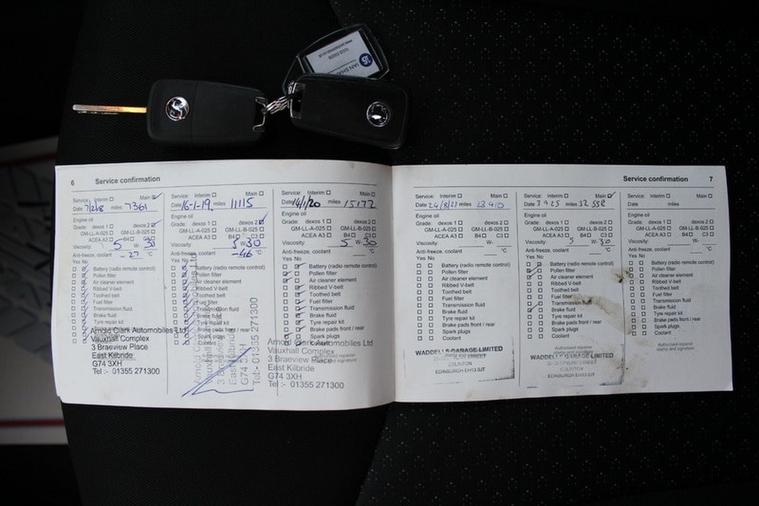 IAN SHAW
6 Service confirmation
Service: Interim Main
Date 7/2/18 miles 7361
Engine oil
Grade: dexos 1 dexos 2
GM-LL-A-025 GM-LL-B-025
ACEA A3 B4 C3
Viscosity 5 W- 30
Anti-freeze, coolant -27 °C
Yes No
Battery (radio remote control)
Pollen filter
Air cleaner element
Ribbed V-belt
Toothed belt
Fuel filter
Transmission fluid
Brake fluid
Tyre repair kit
Brake pads front / rear
Arnold Clark Automobiles Ltd
Vauxhall Complex
3 Braeview Place
East Kilbride
G74 3XH
Tel:- 01355 271300
Service: Interim Main
Date 16-1-19 miles 11115
Engine oil
Grade: dexos 1 dexos 2
GM-LL-A-025 GM-LL-B-025
ACEA A3 B4 C3
Viscosity 5 W- 30
Anti-freeze, coolant -46 °C
Yes No
Battery (radio remote control)
Pollen filter
Air cleaner element
Ribbed V-belt
Toothed belt
Fuel filter
Transmission fluid
Brake fluid
Tyre repair kit
Brake pads front / rear
Spark plugs
East Kilbride
G74 3XH
Tel:- 01355 271300
Service: Interim Main
Date 14/1/20 miles 15172
Engine oil
Grade: dexos 1 dexos 2
GM-LL-A-025 GM-LL-B-025
ACEA A3 B4 C3
Viscosity 5 W- 30
Anti-freeze, coolant °C
Yes No
Battery (radio remote control)
Pollen filter
Air cleaner element
Ribbed V-belt
Toothed belt
Fuel filter
Transmission fluid
Brake fluid
Tyre repair kit
Brake pads front / rear
Spark plugs
Coolant
Arnold Clark Automobiles Ltd
Vauxhall Complex
3 Braeview Place
East Kilbride
G74 3XH
Tel:- 01355 271300
Service confirmation 7
Service: Interim Main
Date 24/8/21 miles 23410
Engine oil
Grade: dexos 1 dexos 2
GM-LL-A-025 GM-LL-B-025
ACEA A3 B4 C3
Viscosity W-
Anti-freeze, coolant °C
Yes No
Battery (radio remote control)
Pollen filter
Air cleaner element
Ribbed V-belt
Toothed belt
Fuel filter
Transmission fluid
Brake fluid
Tyre repair kit
Brake pads front / rear
Spark plugs
Coolant
WADDELLS GARAGE LIMITED
COLINTON
EDINBURGH EH13 0JT
Service: Interim Main
Date 3 9 25 miles 32558
Engine oil
Grade: dexos 1 dexos 2
GM-LL-A-025 GM-LL-B-025
ACEA A3 B4 C3
Viscosity 5 W- 30
Anti-freeze, coolant °C
Yes No
Battery (radio remote control)
Pollen filter
Air cleaner element
Ribbed V-belt
Toothed belt
Fuel filter
Transmission fluid
Brake fluid
Tyre repair kit
Brake pads front / rear
Spark plugs
Coolant
WADDELLS GARAGE LIMITED
COLINTON
EDINBURGH EH13 0JT
Service: Interim Main
Date miles
Engine oil
Grade: dexos 1 dexos 2
GM-LL-A-025 GM-LL-B-025
ACEA A3 B4 C3
Viscosity W-
Anti-freeze, coolant °C
Yes No
Battery (radio remote control)
Pollen filter
Air cleaner element
Ribbed V-belt
Toothed belt
Fuel filter
Transmission fluid
Brake fluid
Tyre repair kit
Brake pads front / rear
Spark plugs
Coolant
Authorised repairer
stamp and signature